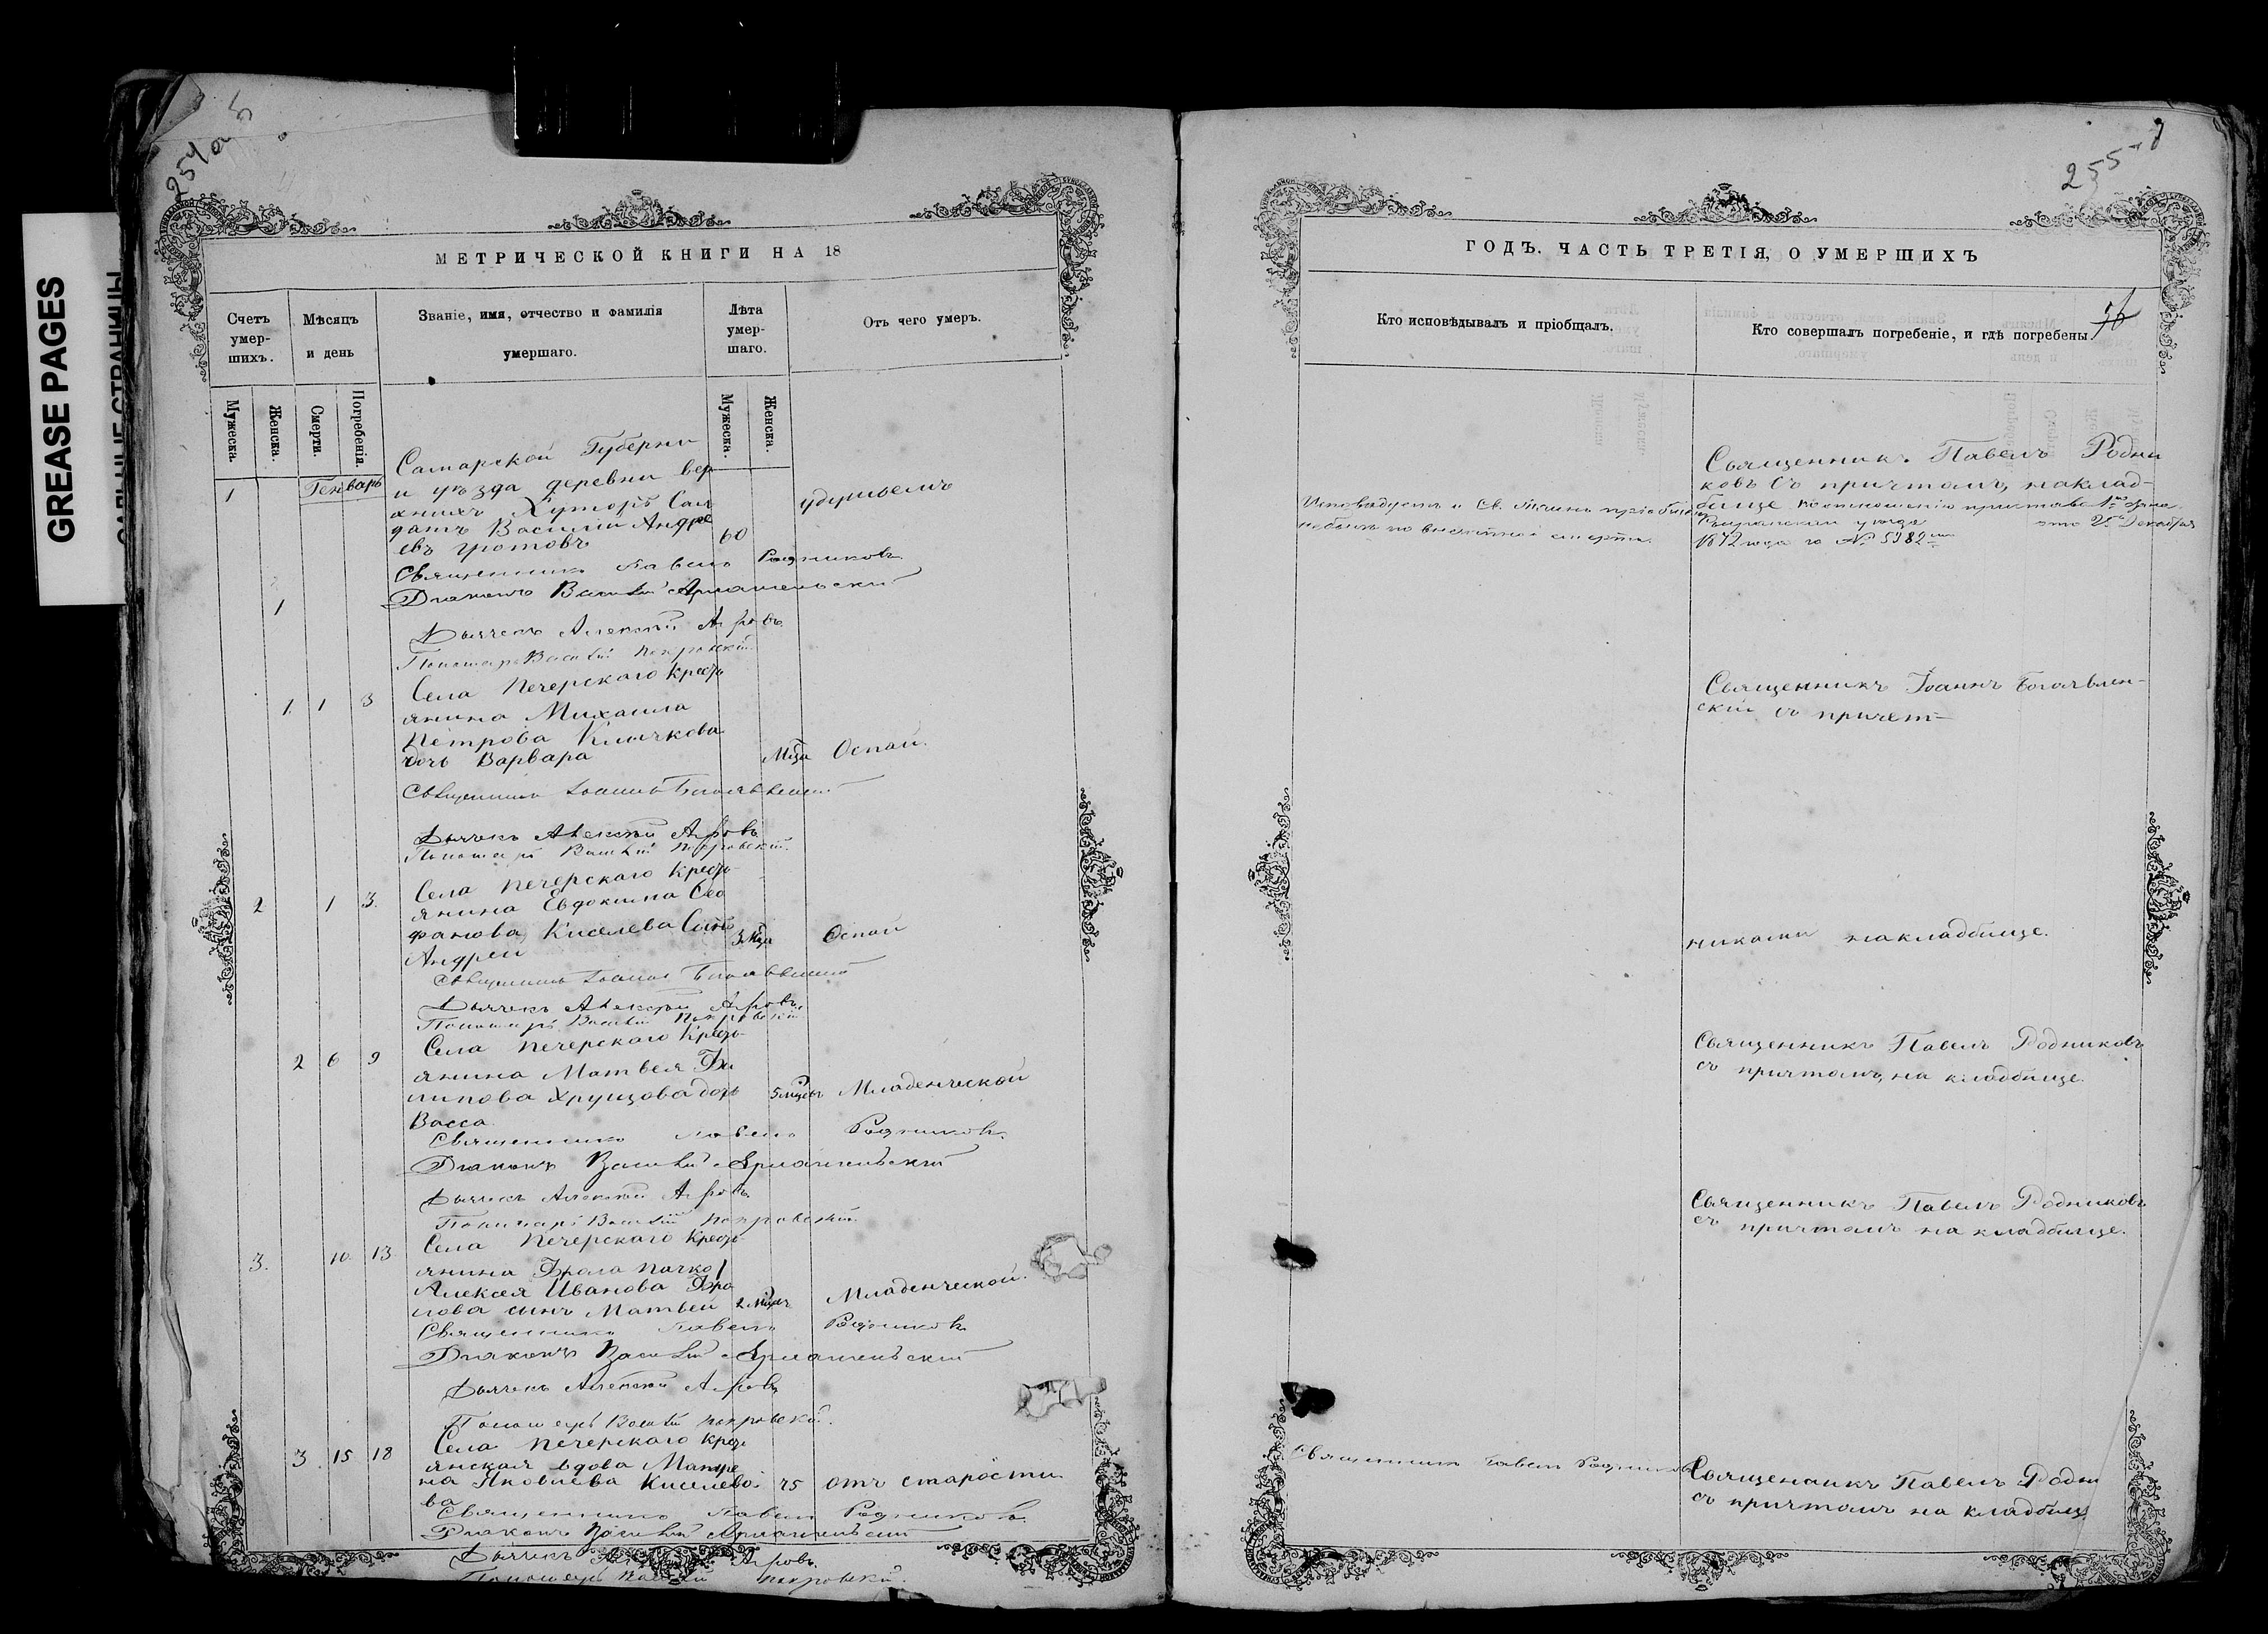 GREASE PAGES
САЛЬНЫЕ СТРАНИЦЫ
254 об
255
МЕТРИЧЕСКОЙ КНИГИ НА 18
Счетъ умер- шихъ.
Мѣсяцъ и день
Званіе, имя, отчество и фамилія умершаго.
Лѣта умер- шаго.
Отъ чего умеръ.
Мужеска.
Женска.
Смерти.
Погребенія.
Мужеска.
Женска.
Генварь
1
Самарской Губерни
и уѣзда деревни вер
хнихъ Хуторъ Сал
датъ Василий Андре
евъ Гротовъ
60
удушьемъ
Священникъ Павелъ Родниковъ
Диаконъ Василій
1
Дьячекъ Алексѣй
Пономарь Василій Покровскій
1 1 3
Села Печерскаго Кресть
янина Михаила
Петрова Клычкова
дочь Варвара
Мѣца
Оспой.
Священникъ Іоаннъ Богоявленскій
Дьячекъ Алексѣй
Пономарь Василій Покровскій.
2 1 3.
Села Печерскаго Кресть
янина Евдокима Сео
фанова, Киселева Сынъ
Андрей
3 Мѣца
Оспой
Священникъ Іоаннъ Богоявленскій
Дьячекъ Алексѣй
Пономарь Василій Покровскій
2 6 9
Села Печерскаго Кресть
янина Матвея Фи
липова Хрущова дочь
Васса.
5 мѣцовъ
Младенческой
Священникъ Павелъ Родниковъ.
Диаконъ Василій
Дьячекъ Алексѣй
Пономарь Василій Покровскій.
3. 10 13
Села Печерскаго Кресть
янина Фрола
Алексея Иванова Фро
лова сынъ Матвей
2 Мѣцъ
Младенческой.
Священникъ Павелъ Родниковъ
Диаконъ Василій
Дьячекъ Алексѣй
Пономарь Василій Покровскій.
3 15 18
Села Печерскаго Крес
янская вдова Матре
на Яковлева Киселево
ва
75
отъ старости
Священникъ Павелъ Родниковъ
Диаконъ Василій
Дьячекъ
Пономарь Василій Покровскій
ГОДЪ. ЧАСТЬ ТРЕТІЯ, О УМЕРШИХЪ
Кто исповѣдывалъ и пріобщалъ.
Кто совершалъ погребеніе, и гдѣ погребены.
56
Исповѣдуемъ и Св. Таинъ пріобщенъ
не былъ по внезапной смерти.
Священникъ Павелъ Родни
ковъ съ причтомъ, наклад-
бище по отношенію пристава 1го стана
Сызранскаго уѣзда отъ 21го Декабря
1872 года за № 5382
Священникъ Іоаннъ Богоявлен-
скій съ причет-
никами накладбище.
Священникъ Павелъ Родниковъ
съ причтомъ, на кладбище.
Священникъ Павелъ Родниковъ
съ причтомъ на кладбище.
Священникъ Павелъ Родниковъ
Священникъ Павелъ Родни
съ причтомъ на кладбищ